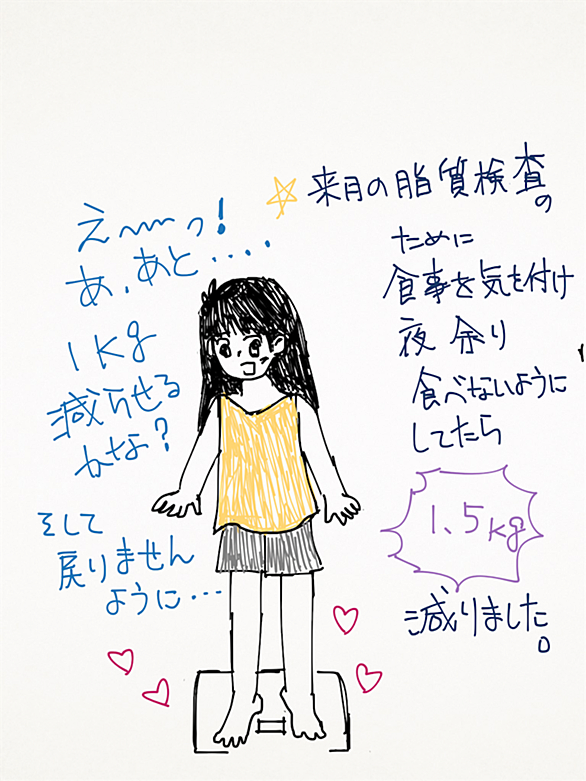 来月の脂質検査の
ために
食事を気を付け
夜余り
食べないように
してたら
1.5kg
減りました。
え〜〜っ!
あ、あと‥‥
1kg
減らせる
かな?
そして
戻りません
ように…